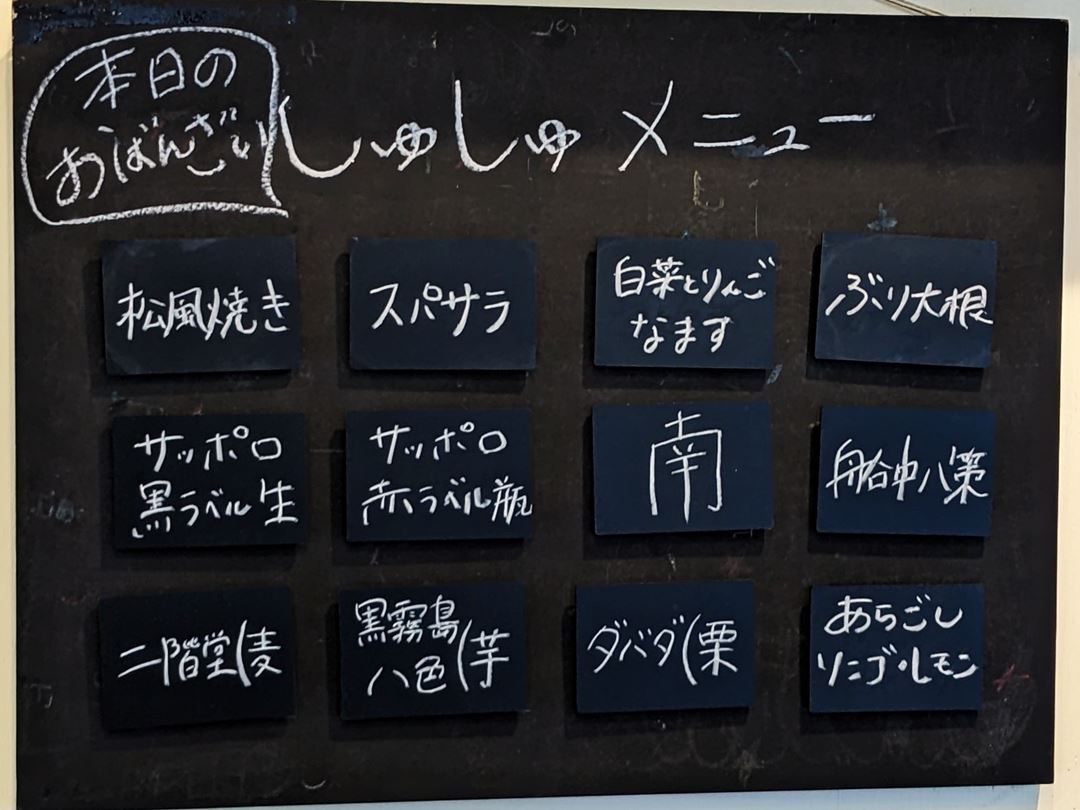 本日の
おばんざい
しゅしゅメニュー
松風焼き
スパサラ
白菜とりんご
なます
ぶり大根
サッポロ
黒ラベル生
サッポロ
赤ラベル瓶
南
船谷中八策
二階堂(麦
黒霧島
八色(芋
ダバダ(栗
あらごし
リンゴ・レモン